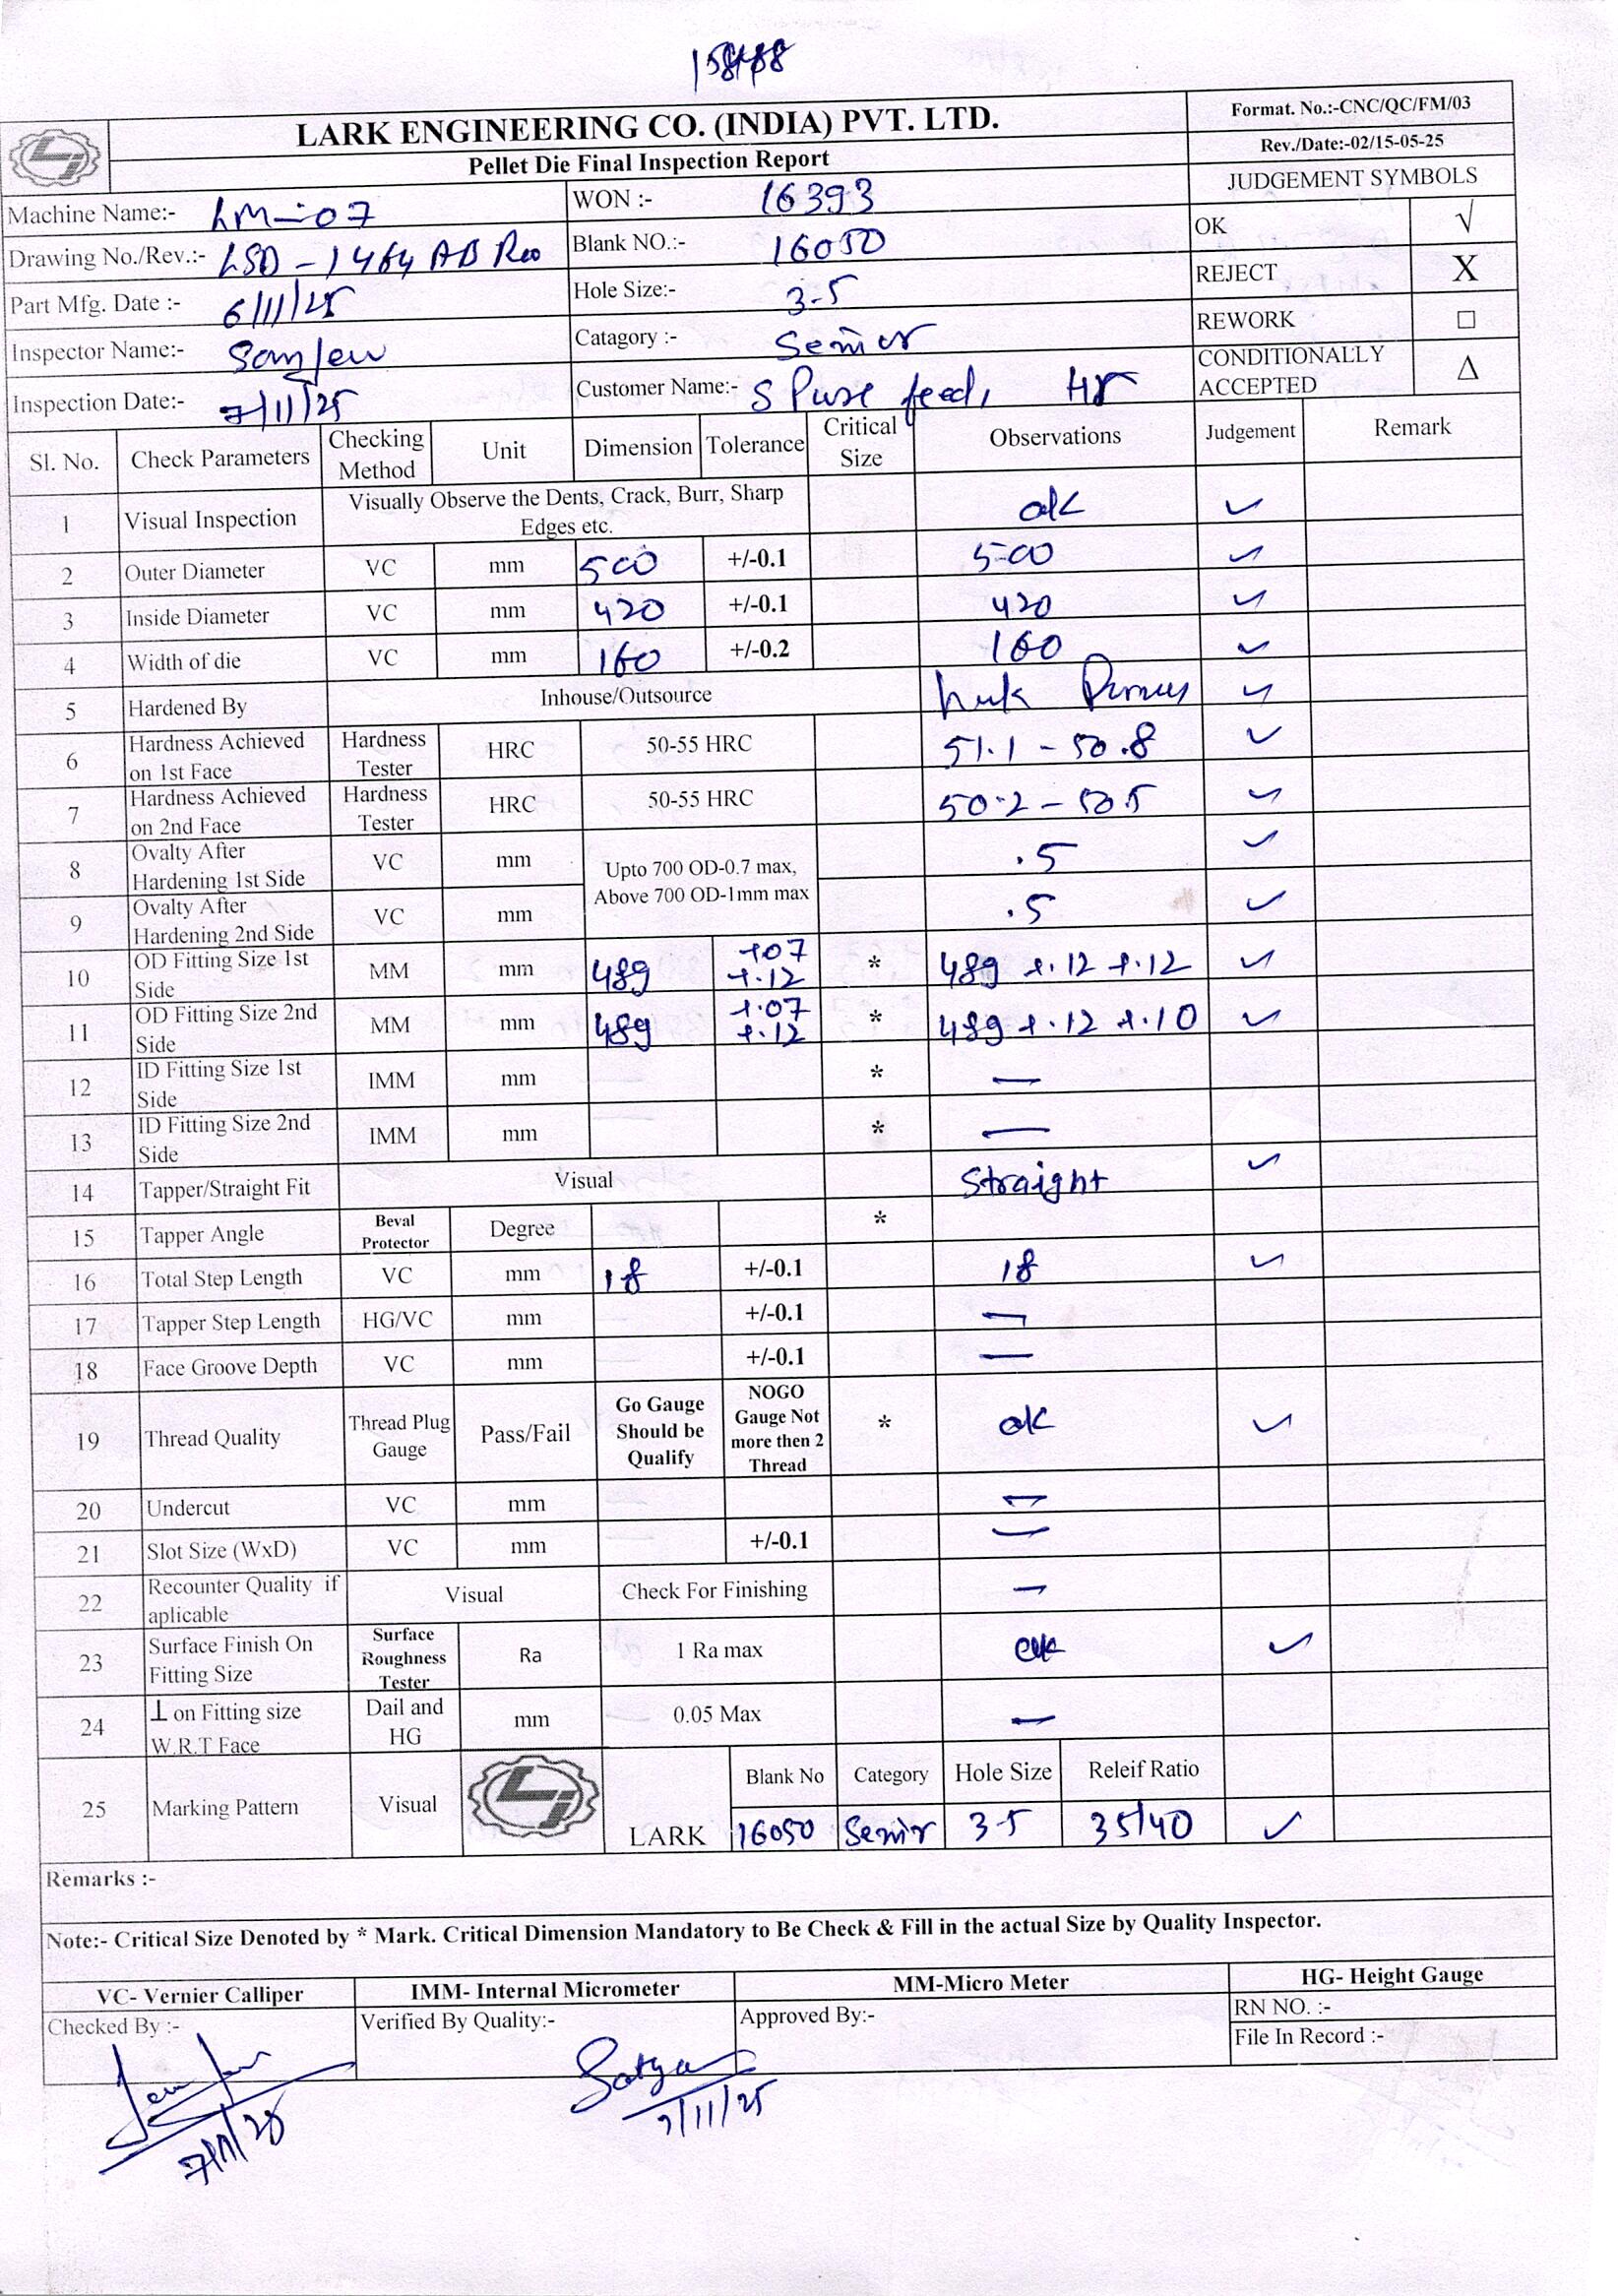 LARK ENGINEERING CO. (INDIA) PVT. LTD.
Pellet Die Final Inspection Report
Format. No.:-CNC/QC/FM/03
Rev./Date:-02/15-05-25
JUDGEMENT SYMBOLS
OK √
REJECT X
REWORK □
CONDITIONALLY ACCEPTED Δ
Machine Name:- LM-07
WON :- 16393
Drawing No./Rev.:- LSD-1464 AB R00
Blank NO.:- 16050
Part Mfg. Date :- 6/11/25
Hole Size:- 3.5
Inspector Name:- Sanjeev
Catagory :- Senior
Inspection Date:- 7/11/25
Customer Name:- S Pure feed, HR
Sl. No. Check Parameters Checking Method Unit Dimension Tolerance Critical Size Observations Judgement Remark
1 Visual Inspection Visually Observe the Dents, Crack, Burr, Sharp Edges etc. ok ✓
2 Outer Diameter VC mm 500 +/-0.1 500 ✓
3 Inside Diameter VC mm 420 +/-0.1 420 ✓
4 Width of die VC mm 160 +/-0.2 160 ✓
5 Hardened By Inhouse/Outsource ✓
6 Hardness Achieved on 1st Face Hardness Tester HRC 50-55 HRC 51.1 - 50.8 ✓
7 Hardness Achieved on 2nd Face Hardness Tester HRC 50-55 HRC 50.2 - 50.5 ✓
8 Ovalty After Hardening 1st Side VC mm Upto 700 OD-0.7 max, Above 700 OD-1mm max .5 ✓
9 Ovalty After Hardening 2nd Side VC mm .5 ✓
10 OD Fitting Size 1st Side MM mm 489 +07 +.12 * 489 +.12 +.12 ✓
11 OD Fitting Size 2nd Side MM mm 489 +.07 +.12 * 489 +.12 +.10 ✓
12 ID Fitting Size 1st Side IMM mm * —
13 ID Fitting Size 2nd Side IMM mm * —
14 Tapper/Straight Fit Visual Straight ✓
15 Tapper Angle Beval Protector Degree *
16 Total Step Length VC mm 18 +/-0.1 18 ✓
17 Tapper Step Length HG/VC mm +/-0.1 —
18 Face Groove Depth VC mm +/-0.1 —
19 Thread Quality Thread Plug Gauge Pass/Fail Go Gauge Should be Qualify NOGO Gauge Not more then 2 Thread * ok ✓
20 Undercut VC mm —
21 Slot Size (WxD) VC mm +/-0.1 —
22 Recounter Quality if aplicable Visual Check For Finishing —
23 Surface Finish On Fitting Size Surface Roughness Tester Ra 1 Ra max ok ✓
24 ⊥ on Fitting size W.R.T Face Dail and HG mm 0.05 Max —
25 Marking Pattern Visual LARK
Blank No Category Hole Size Releif Ratio
16050 Senior 3.5 35/40 ✓
Remarks :-
Note:- Critical Size Denoted by * Mark. Critical Dimension Mandatory to Be Check & Fill in the actual Size by Quality Inspector.
VC- Vernier Calliper IMM- Internal Micrometer MM-Micro Meter HG- Height Gauge
Checked By :- Verified By Quality:- Approved By:- RN NO. :-
File In Record :-
Satya
7/11/25 7/11/25